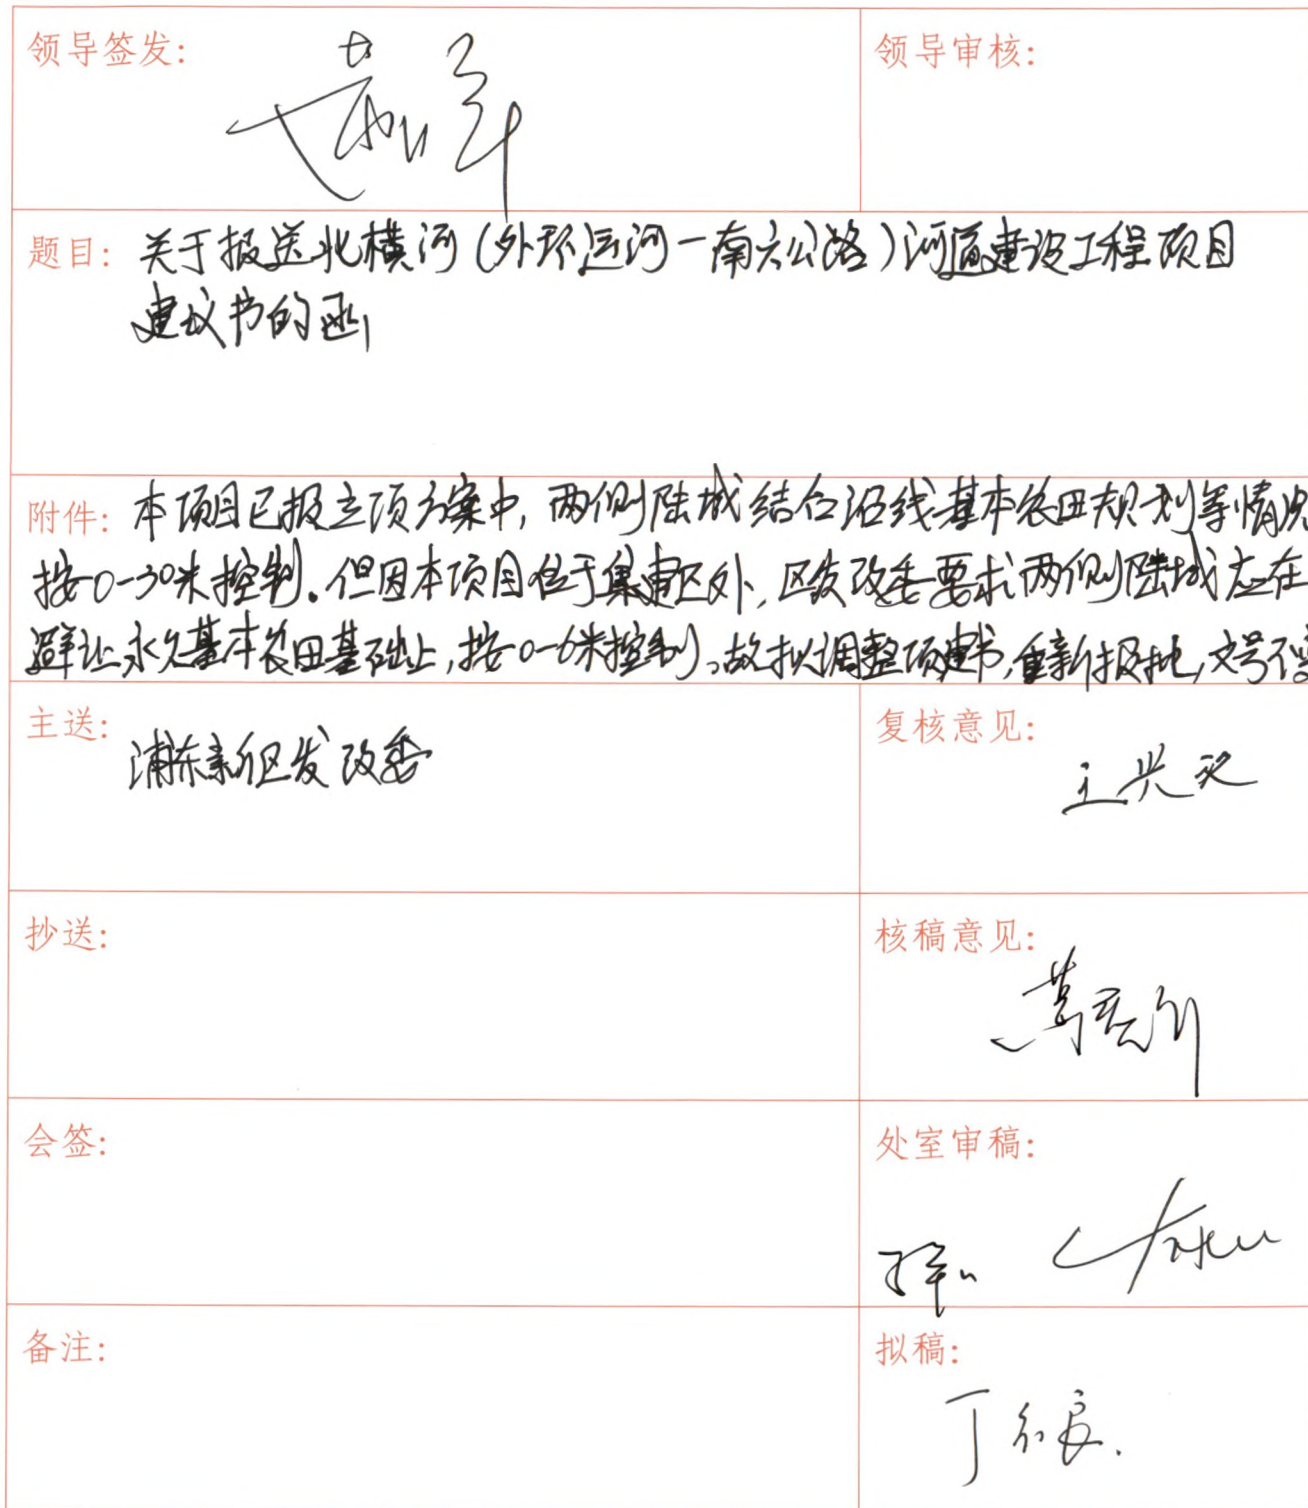 领导签发:
领导审核:
题目: 关于报送北横河(外环运河一南六公路)河道建设工程项目
建议书的函
附件: 本项目已报立项方案中,两侧陆域结合沿线基本农田规划等情况
按0-30米控制。但因本项目位于集建区外,区发改委要求两侧陆域应在
避让永久基本农田基础上,按0-6米控制。故拟调整项建书,重新报批,文号不变
主送: 浦东新区发改委
复核意见:
抄送:
核稿意见:
会签:
处室审稿:
备注:
拟稿: